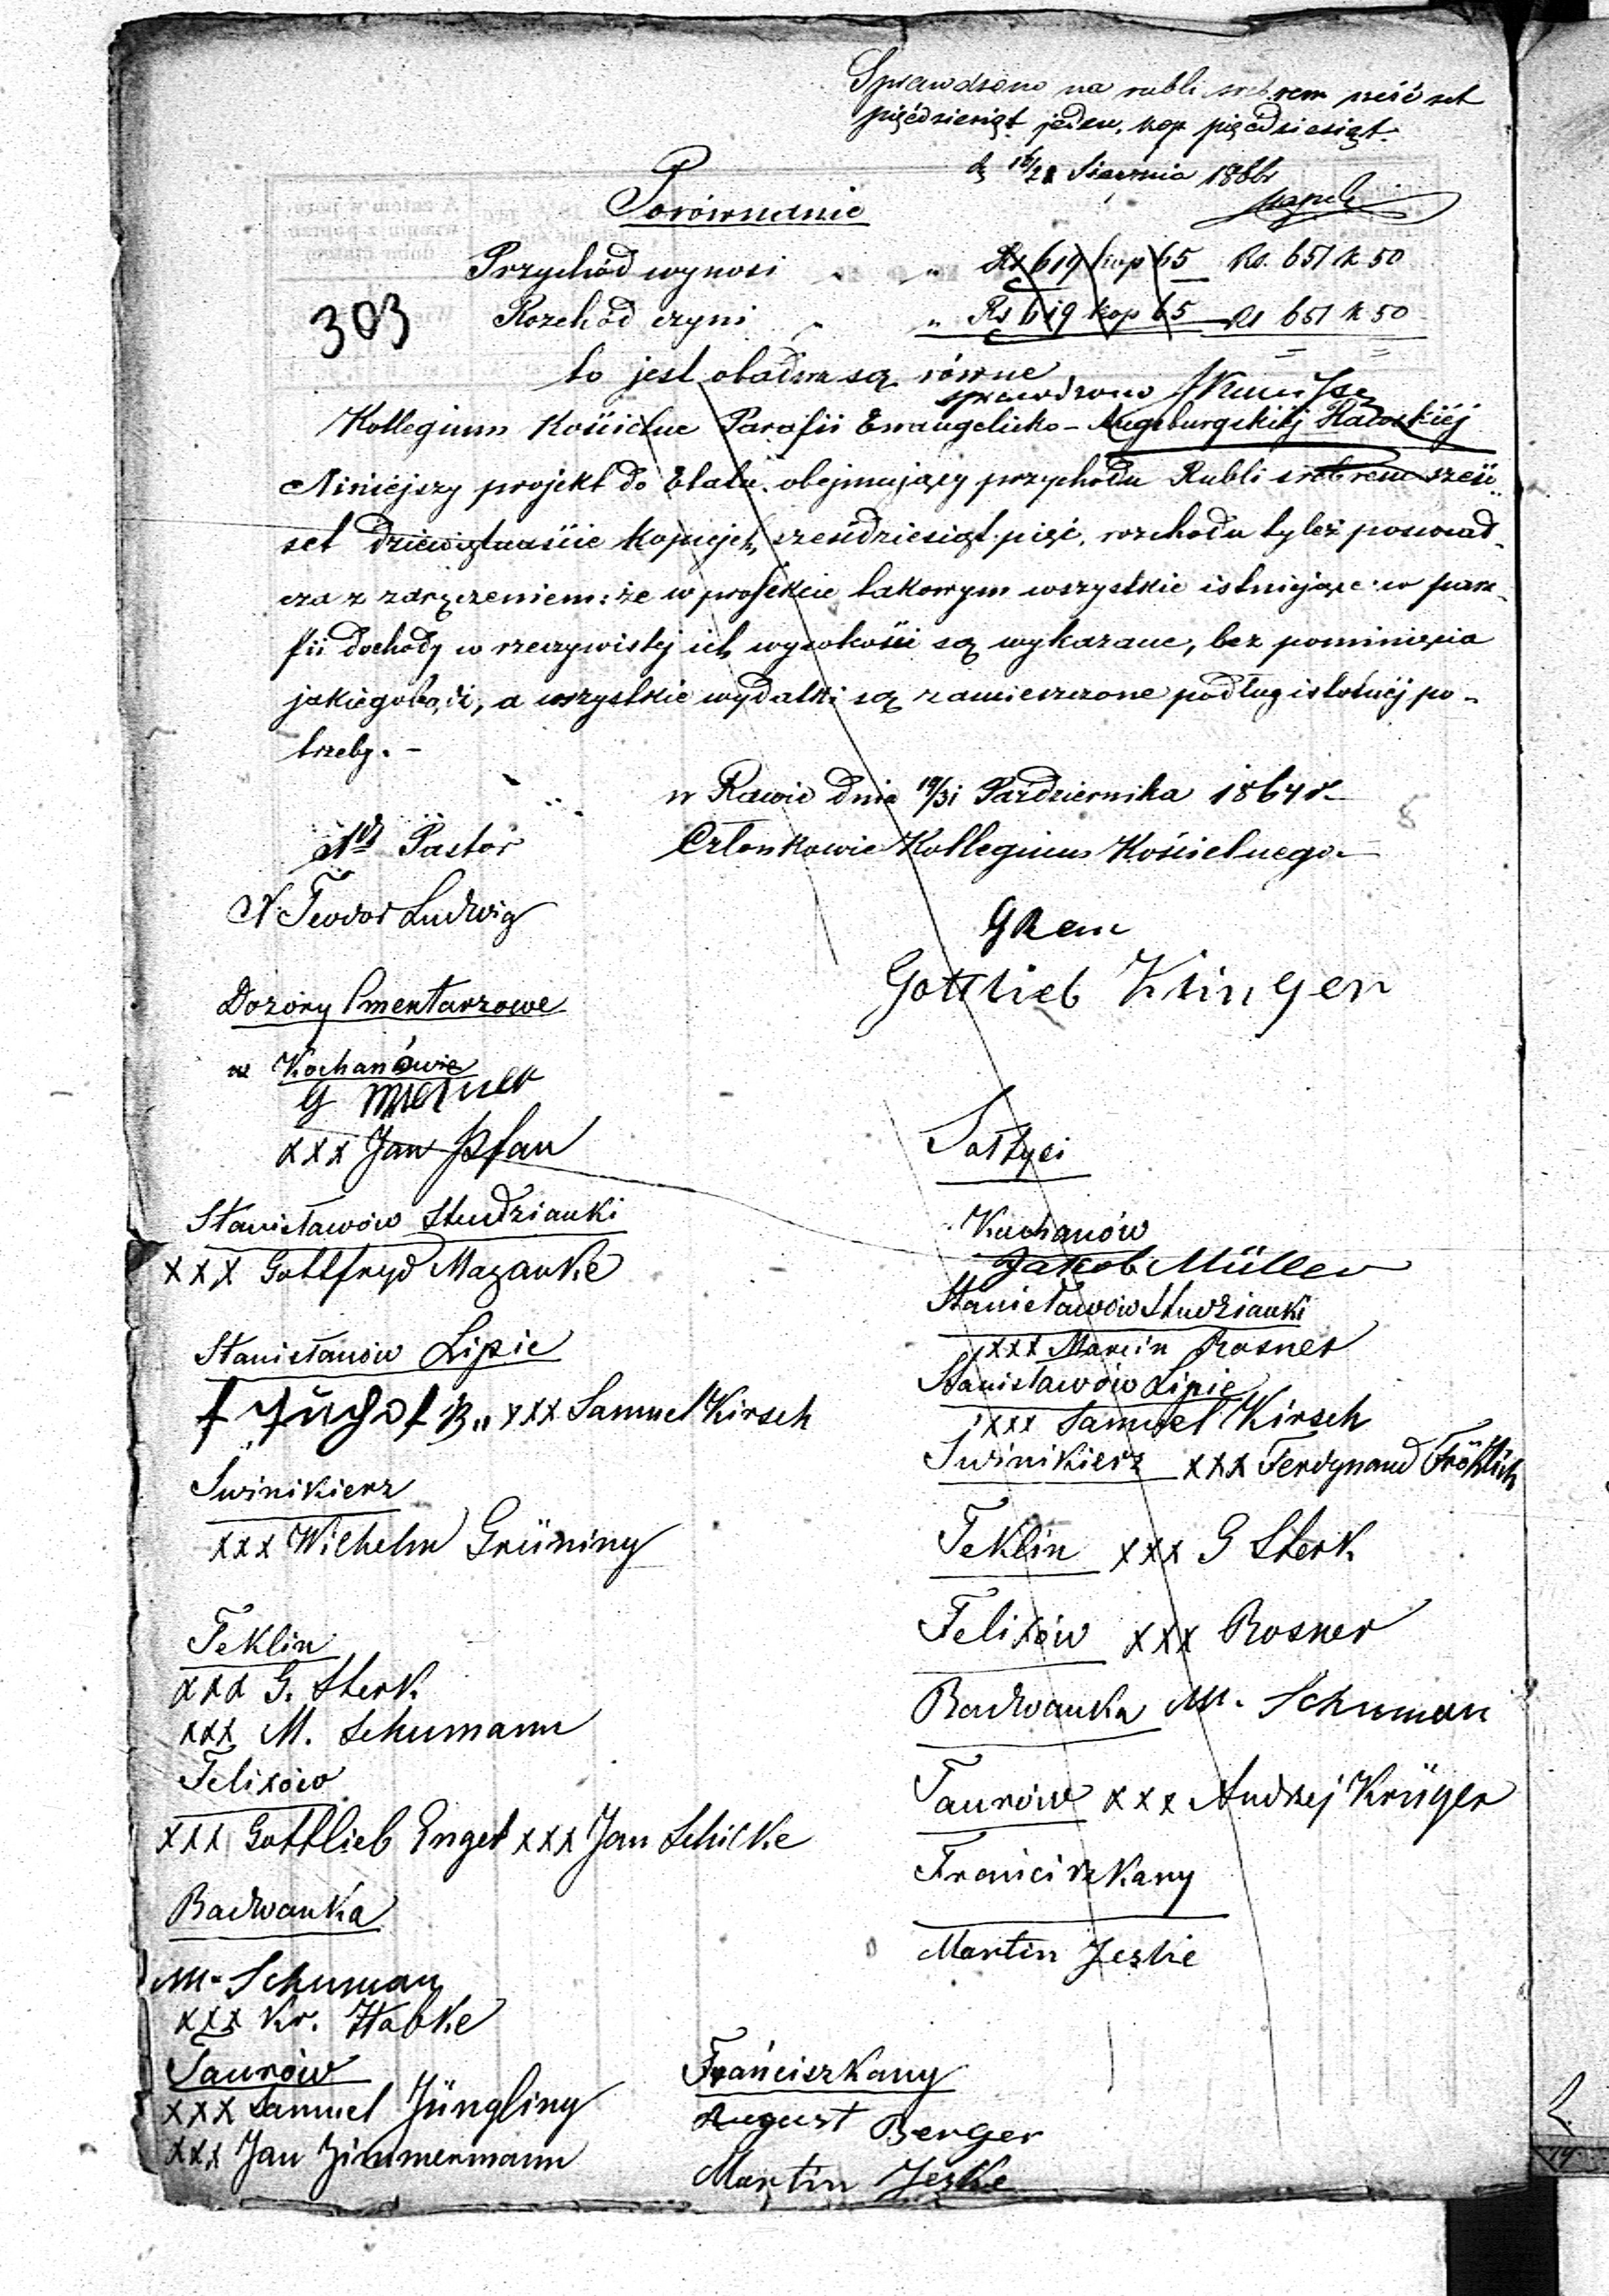 Sprawdzono na rubli srebrem sześć set
pięćdziesiąt jeden, kop pięćdziesiąt.
d 16/28 Stycznia 1866
Porównanie
Przychód wynosi " " Rs 619 kop 65 Rs. 651 k 50
303
Rozchód czyni " " Rs 619 kop 65 Rs 651 k 50
to jest obadwa są równe
sprawdzono
Kollegium Kościelne Parafii Ewangelicko-Augsburgskiéj Rawskiéj
Niniejszy projekt do Etatu obejmujący przychodu Rubli srebrem sześć
set dziewiętnaście kopiejek sześćdziesiąt pięć, rozchodu tyleż poświad-
cza z zaręczeniem: że w projekcie takowym wszystkie istniejące w para-
fii dochody w rzeczywistej ich wysokości są wykazane, bez pominięcia
jakiegobądź, a wszystkie wydatki są zamieszczone podług istotnéj po-
trzeby. -
w Rawie dnia 19/31 Października 1864 r.
Pastor
Członkowie Kollegium Kościelnego
Teodor Ludwig
Gottlieb Klinger
Dozory Cmentarzowe
w Kochanówie
xxx Jan Pfau
Sołtysi
Stanisławów Studzianki
Kochanów
xxx Gottfryd Mazanke
Jakob Müller
Stanisławów Studzianki
xxx Marcin Rosner
Stanisławów Lipie
Stanisławów Lipie
xxx Samuel Kirsch
xxx Samuel Kirsch
Swinikierz xxx Ferdynand Fröhlich
Swinikierz
xxx Wilhelm Grüning
Teklin xxx G Sterk
Teklin
Felixów xxx Rosner
xxx G. Sterk
xxx M. Schumann
Badwanka M. Schuman
Felixów
Taurów xxx Andrzej Krüger
xxx Gottlieb Engel xxx Jan Schilke
Franciszkany
Badwanka
Martin Jeske
M. Schuman
xxx Kr. Habke
Taurów
Franciszkany
xxx Samuel Jüngling
August Berger
xxx Jan Zimmermann
Martin Jeske